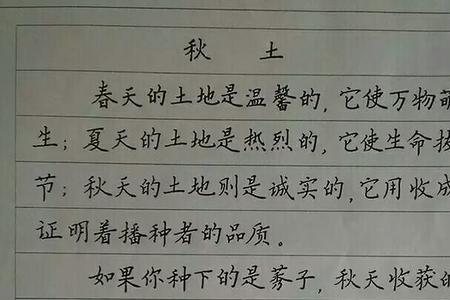 秋 土
春天的土地是温馨的,它使万物萌
生;夏天的土地是热烈的,它使生命拔
节;秋天的土地则是诚实的,它用收成
证明着播种者的品质。
如果你种下的是莠子,秋天收获的